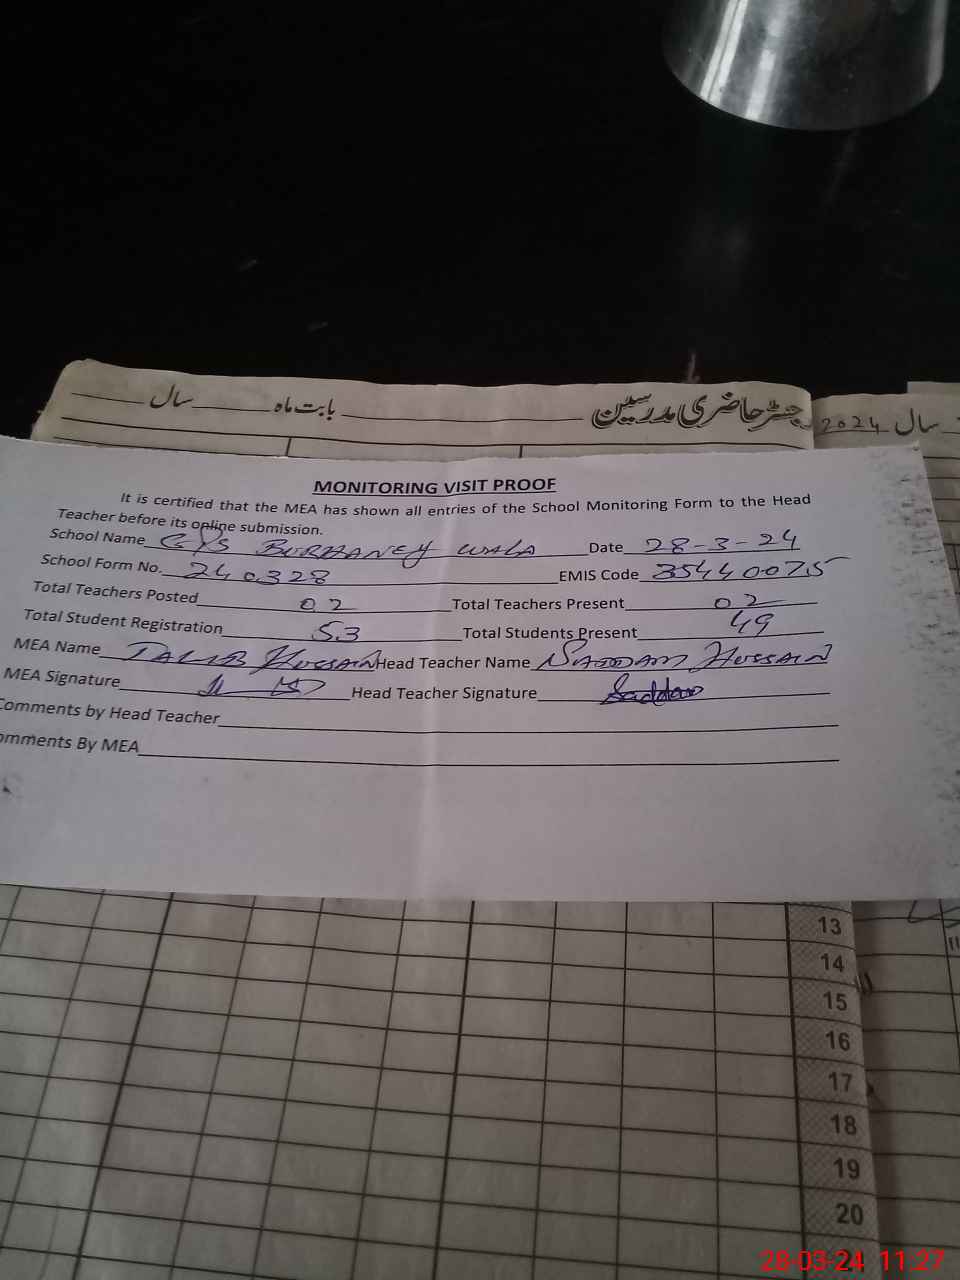 سال ______ بابت ماہ ______ رجسٹر حاضری مدرسین
سال 2024
MONITORING VISIT PROOF
It is certified that the MEA has shown all entries of the School Monitoring Form to the Head
Teacher before its online submission.
School Name GPS BURHANEY WALA Date 28-3-24
School Form No. 240328 EMIS Code 35440075
Total Teachers Posted 02 Total Teachers Present 02
Total Student Registration 53 Total Students Present 49
MEA Name TALIB HUSSAIN Head Teacher Name SADDAM HUSSAIN
MEA Signature Head Teacher Signature Saddam
Comments by Head Teacher
omments By MEA
13
14
15
16
17
18
19
20
28-03-24 11:27